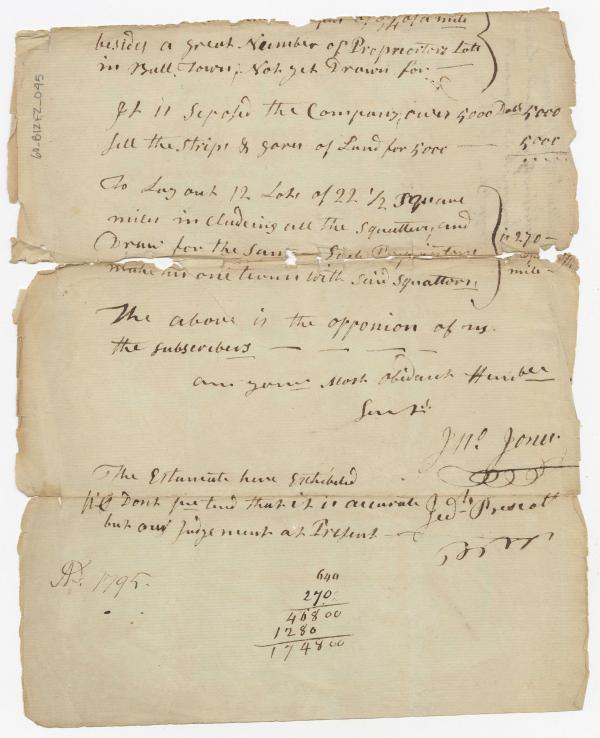 of a mile
besides a great Number of Proprietors Lots
in Ball Town, Not yet Drawn for —
It is Seposed the Company, owes 5000 Dols 5000
Sell the Strips & gores of Land for 5000 — 5000
To Lay out 12 Lots of 22 1/2 Square
miles in cludeing all the Squatters, and
Draw for the Same — Each Proprietors
make his one termes with Said Squatters
is 270 —
mile —
The above is the opponion of us.
the Subscribers — — — —
am your Most obedant Humble
Servt.
Jno. Jones
The Estamate here Exhibeted
We Dont pretend that it is accurate
but our Judgement at Present —
Jedh. Prescott
AD. 1795.
640
270
46800
1280
174800
60-B12F2.095